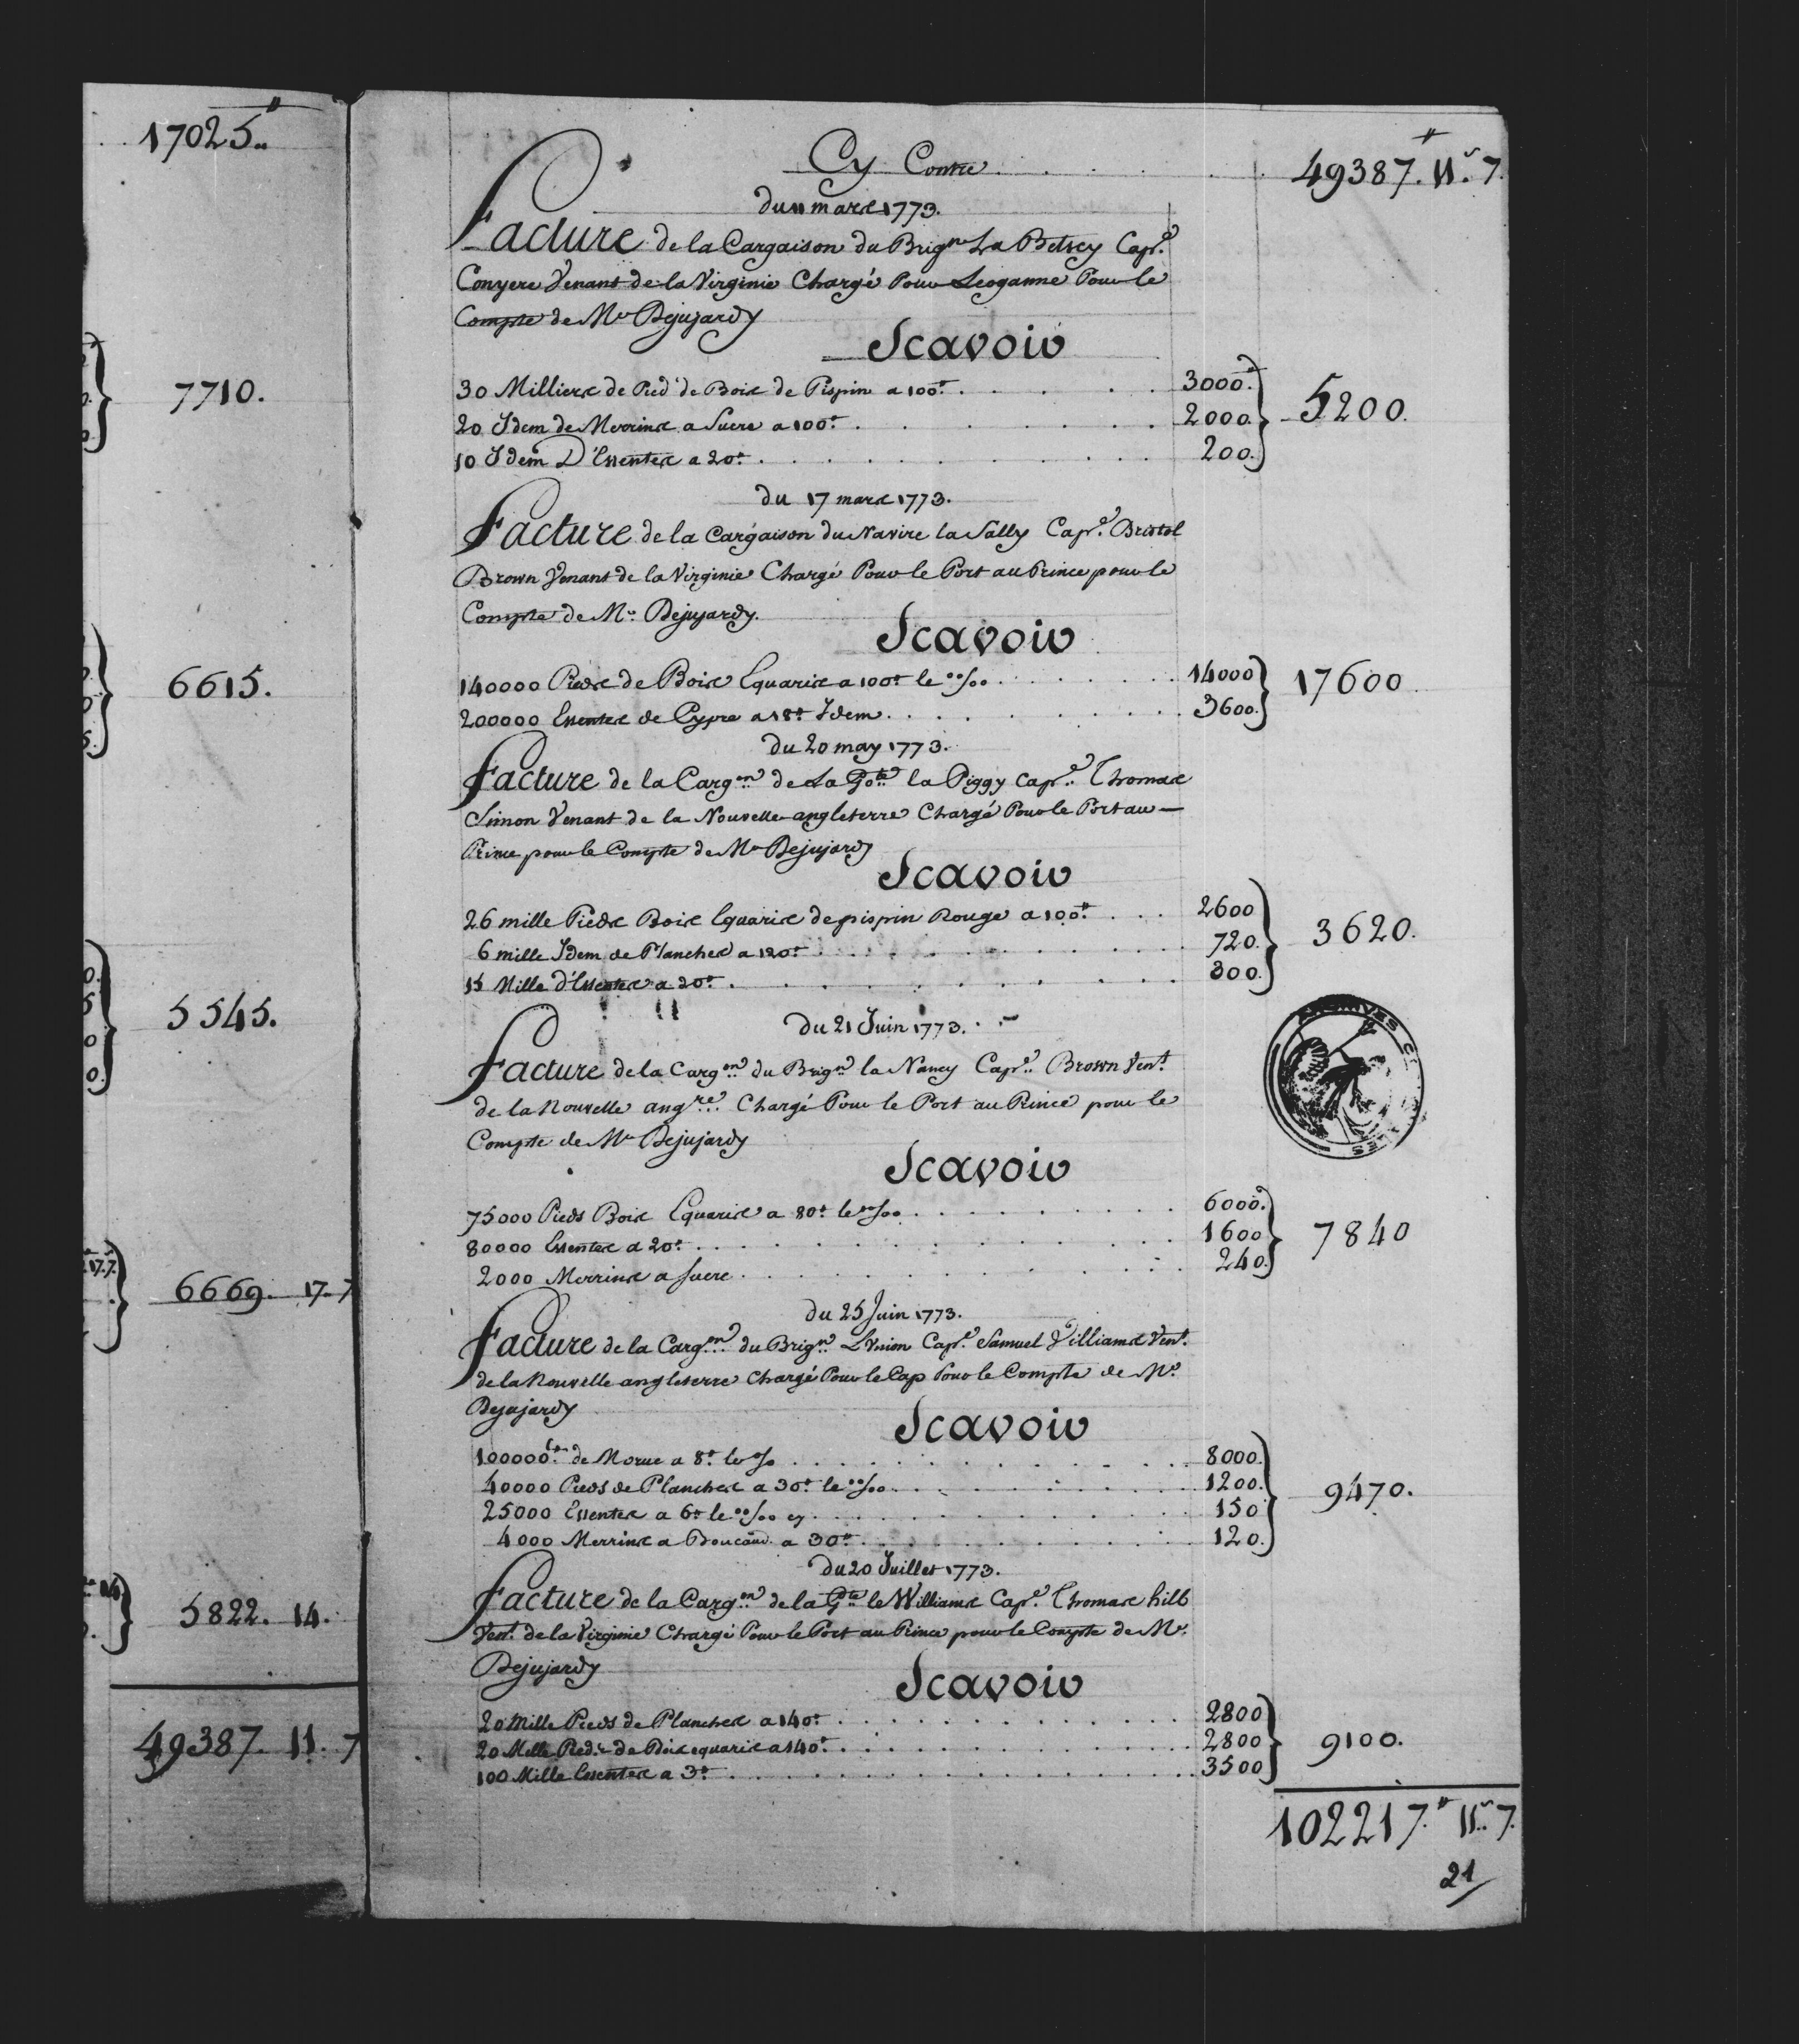 17025..#
7710.
6615.
5545.
6669. 17. 7
5822. 14.
49387. 11. 7
Cy Contre . . . . 49387.# 11.s 7.
du 11 mars 1773.
Facture de la Cargaison du Brig.n La Betsey Cap.e
Conyers Venant de la Virginie Chargé Pour Leoganne Pour le
Compte de Mr Dejujardy
Scavoir
30 Milliers de Pied de Bois de Pispin a 100.# . . . . 3000.#
20 Idem de Merrins a Sucre a 100.# . . . . 2000. } 5200.
10 Idem D'Essentes a 20.# . . . . 200.
du 17 mars 1773.
Facture de la Cargaison du Navire la Sally Cap.e Bristol
Brown Venant de la Virginie Chargé Pour le Port au Prince pour le
Compte de Mr. Dejujardy.
Scavoir
140000 Pieds de Bois Equaris a 100.# le 00/00 . . . . 14000 } 17600
200000 Essentes de Cypre a 18.# Idem . . . . 3600.
du 20 may 1773.
Facture de la Carg.on de La G.te la Piggy Cap.e Thomas
Simon Venant de la Nouvelle angleterre Chargé Pour le Port au —
Prince pour le Compte de Mr Dejujardy
Scavoir
26 mille Pieds Bois Equaris de pispin Rouge a 100.# . . . 2600
6 mille Idem de Planches a 120.# . . . . 720. } 3620.
15 Mille d'Essentes a 20.# . . . . 300.
Du 21 Juin 1773.
Facture de la Carg.on du Brig.n la Nancy Cap.e Brown Ven.t
de la Nouvelle ang.re Chargé Pour le Port au Prince pour le
Compte de Mr Dejujardy
Scavoir
75000 Pieds Bois Equaris a 80.# le 00/00 . . . . 6000.
80000 Essentes a 20.# . . . . 1600 } 7840
2000 Merrins a Sucre . . . . 240.
du 25 Juin 1773.
Facture de la Carg.on du Brig.n L'Union Cap.e Samuel Villiams Ven.t
de la Nouvelle angleterre Chargé Pour le Cap Pour le Compte de Mr.
Dejujardy
Scavoir
100000 lb. de Morue a 8.# le 0/0 . . . . 8000.
40000 Pieds de Planches a 30.# le 00/00 . . . . 1200.
25000 Essentes a 6.# le 00/00 cy . . . . 150 } 9470.
4000 Merrins a Boucaud a 30.# . . . . 120.
Du 20 Juillet 1773.
Facture de la Carg.on de la G.te le Williams Cap.e Thomas hill
Ven.t de la Virginie Chargé Pour le Port au Prince pour le Compte de Mr.
Dejujardy
Scavoir
20 Mille Pieds de Planches a 140.# . . . . 2800
20 Mille Pieds de Bois equaris a 140.# . . . . 2800 } 9100.
100 Mille Essentes a 3.# . . . . 3500
102217.# 11.s 7.
21
ARCHIVES